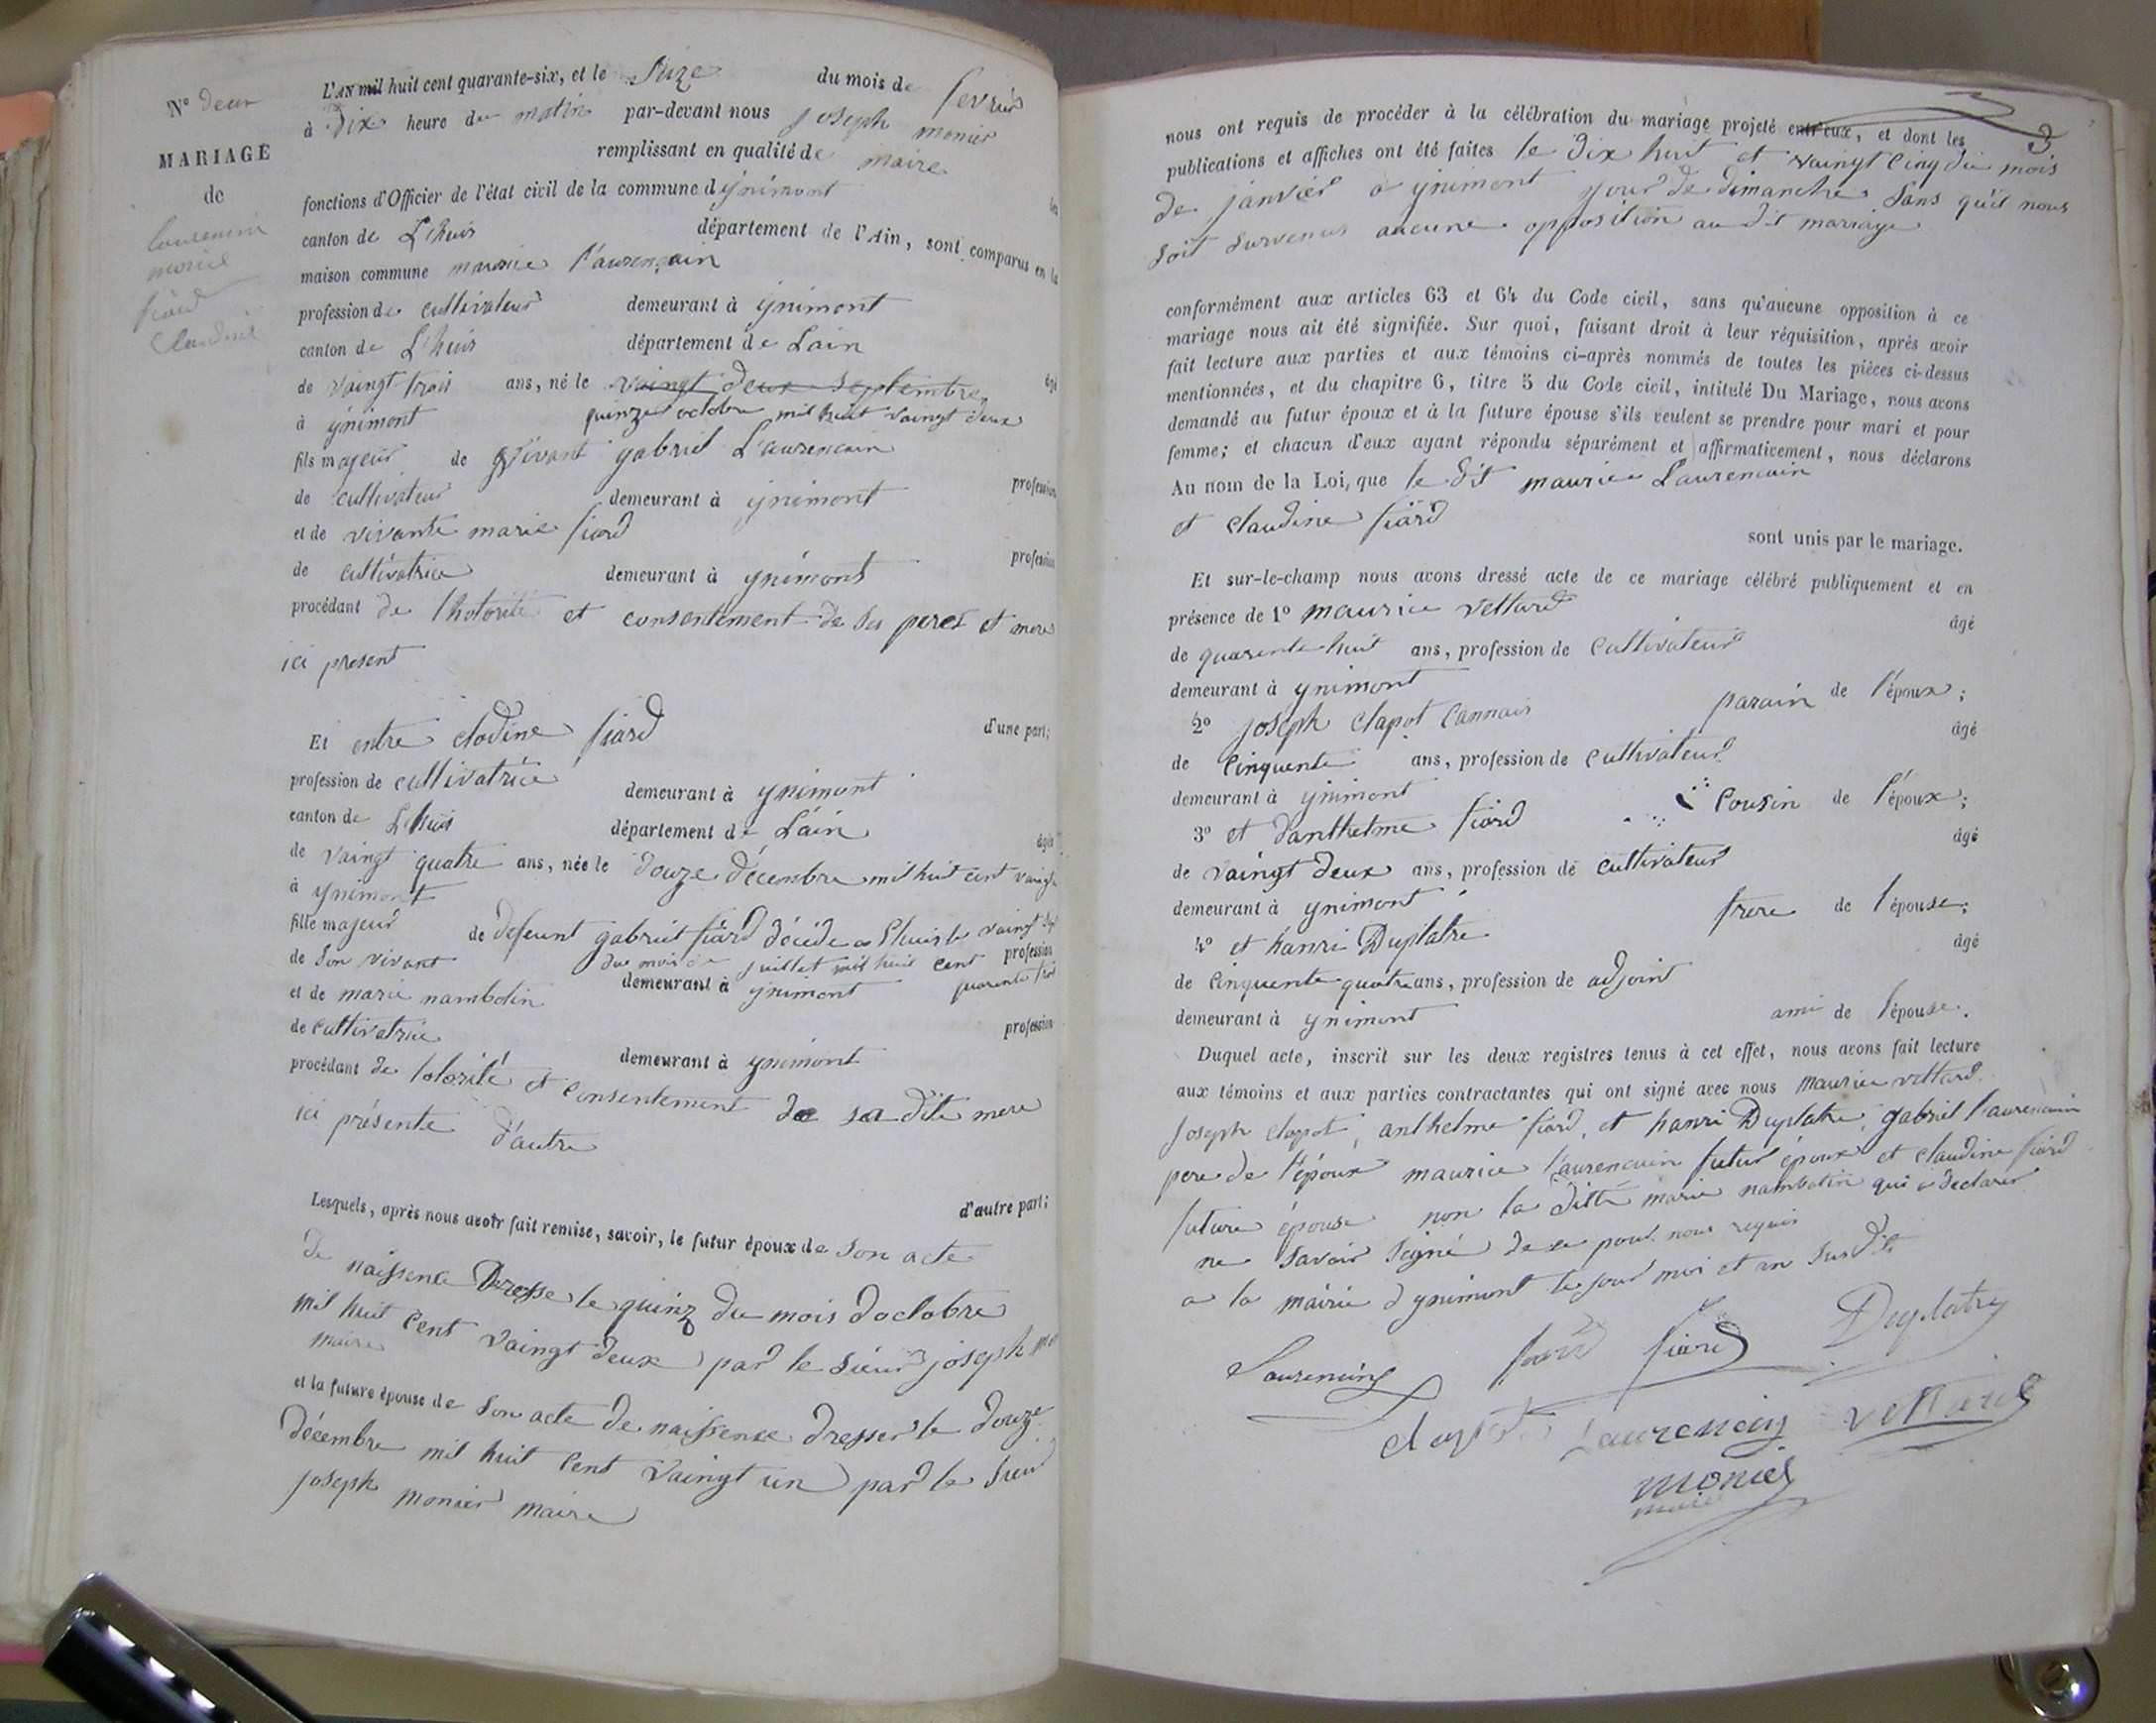 N° deux
MARIAGE
de
Laurencin
fiard
Claudine
L'AN mil huit cent quarante-six, et le du mois de fevrier
à Dix heure du matin par-devant nous joseph monier
remplissant en qualité de maire
fonctions d'Officier de l'état civil de la commune d ynimont les
canton de Lhuis département de l'Ain, sont comparus en la
maison commune maurice l'aurençain
profession de cultivateur demeurant à ynimont
canton de L'huis département de Lain
de vaingt trois ans, né le vaingt deux septembre âgé
à ynimont quinze octobre mil huit vaingt deux
fils majeur de vivant gabriel L'aurencain
de cultivateur demeurant à ynimont profession
et de vivante marie fiard
de cultivatrice demeurant à ynimont profession
procédant de lhotorité et consentement de ses peres et mere
ici present
Et entre clodine fiard d'une part;
profession de cultivatrice demeurant à ynimont
canton de Lhuis département de Láin
de vaingt quatre ans, née le douze décembre mil huit cent vaingt âgée
à ynimont
fille majeur de defeunt gabriel fiard décéde a Lhuis le vaingt
de son vivant du mois de juillet mil huit cent profession
et de marie nambotin demeurant à ynimont quarente trois
de cultivatrice profession
procédant de lotorité et consentement demeurant à ynimont
ici présente d'autre de sa dite mere
d'autre part;
Lesquels, après nous avoir fait remise, savoir, le futur époux de son acte
de naissence Dresse le quinz du mois doctobre
mil huit cent vaingt deux par le sieur joseph
maire
et la future épouse de son acte de naissence dresser le douze
décembre mil huit cent vaingt un par le sieur
joseph monier maire
3
nous ont requis de procéder à la célébration du mariage projeté entr'eux, et dont les
publications et affiches ont été faites le dix huit et vaingt cinq du mois
de janvier a ynimont jour de dimanche sans qu'il nous
soit survenus aucune opposition au dit mariage
conformément aux articles 63 et 64 du Code civil, sans qu'aucune opposition à ce
mariage nous ait été signifiée. Sur quoi, faisant droit à leur réquisition, après avoir
fait lecture aux parties et aux témoins ci-après nommés de toutes les pièces ci-dessus
mentionnées, et du chapitre 6, titre 5 du Code civil, intitulé Du Mariage, nous avons
demandé au futur époux et à la future épouse s'ils veulent se prendre pour mari et pour
femme; et chacun d'eux ayant répondu séparément et affirmativement, nous déclarons
Au nom de la Loi, que le dit maurice Laurencain
et claudine fiard
sont unis par le mariage.
Et sur-le-champ nous avons dressé acte de ce mariage célébré publiquement et en
présence de 1° maurice vettard âgé
de quarente huit ans, profession de cultivateur
demeurant à ynimont parain de l'époux;
2° joseph clapot cannais âgé
de cinquente ans, profession de cultivateur
demeurant à ynimont cousin de l'époux;
3° et danthelme fiard âgé
de vaingt deux ans, profession de cultivateur
demeurant à ynimont frere de l'épouse;
4° et hanri Duplatre âgé
de cinquente quatre ans, profession de adjoint
demeurant à ynimont ami de l'épouse.
Duquel acte, inscrit sur les deux registres tenus à cet effet, nous avons fait lecture
aux témoins et aux parties contractantes qui ont signé avec nous maurice vettard
joseph clapot, anthelme fiard, et hanri Duplatre, gabriel l'aurencain
pere de l'époux maurice l'aurencain futur époux et claudine fiard
future épouse non la ditte marie nambotin qui a declarer
ne savoir signé de ce pour nous requis
a la mairie d ynimont les jour moi et an susdit
Laurencin fiard fiard Duplatre
clapot Laurencin vettard
monier
maire